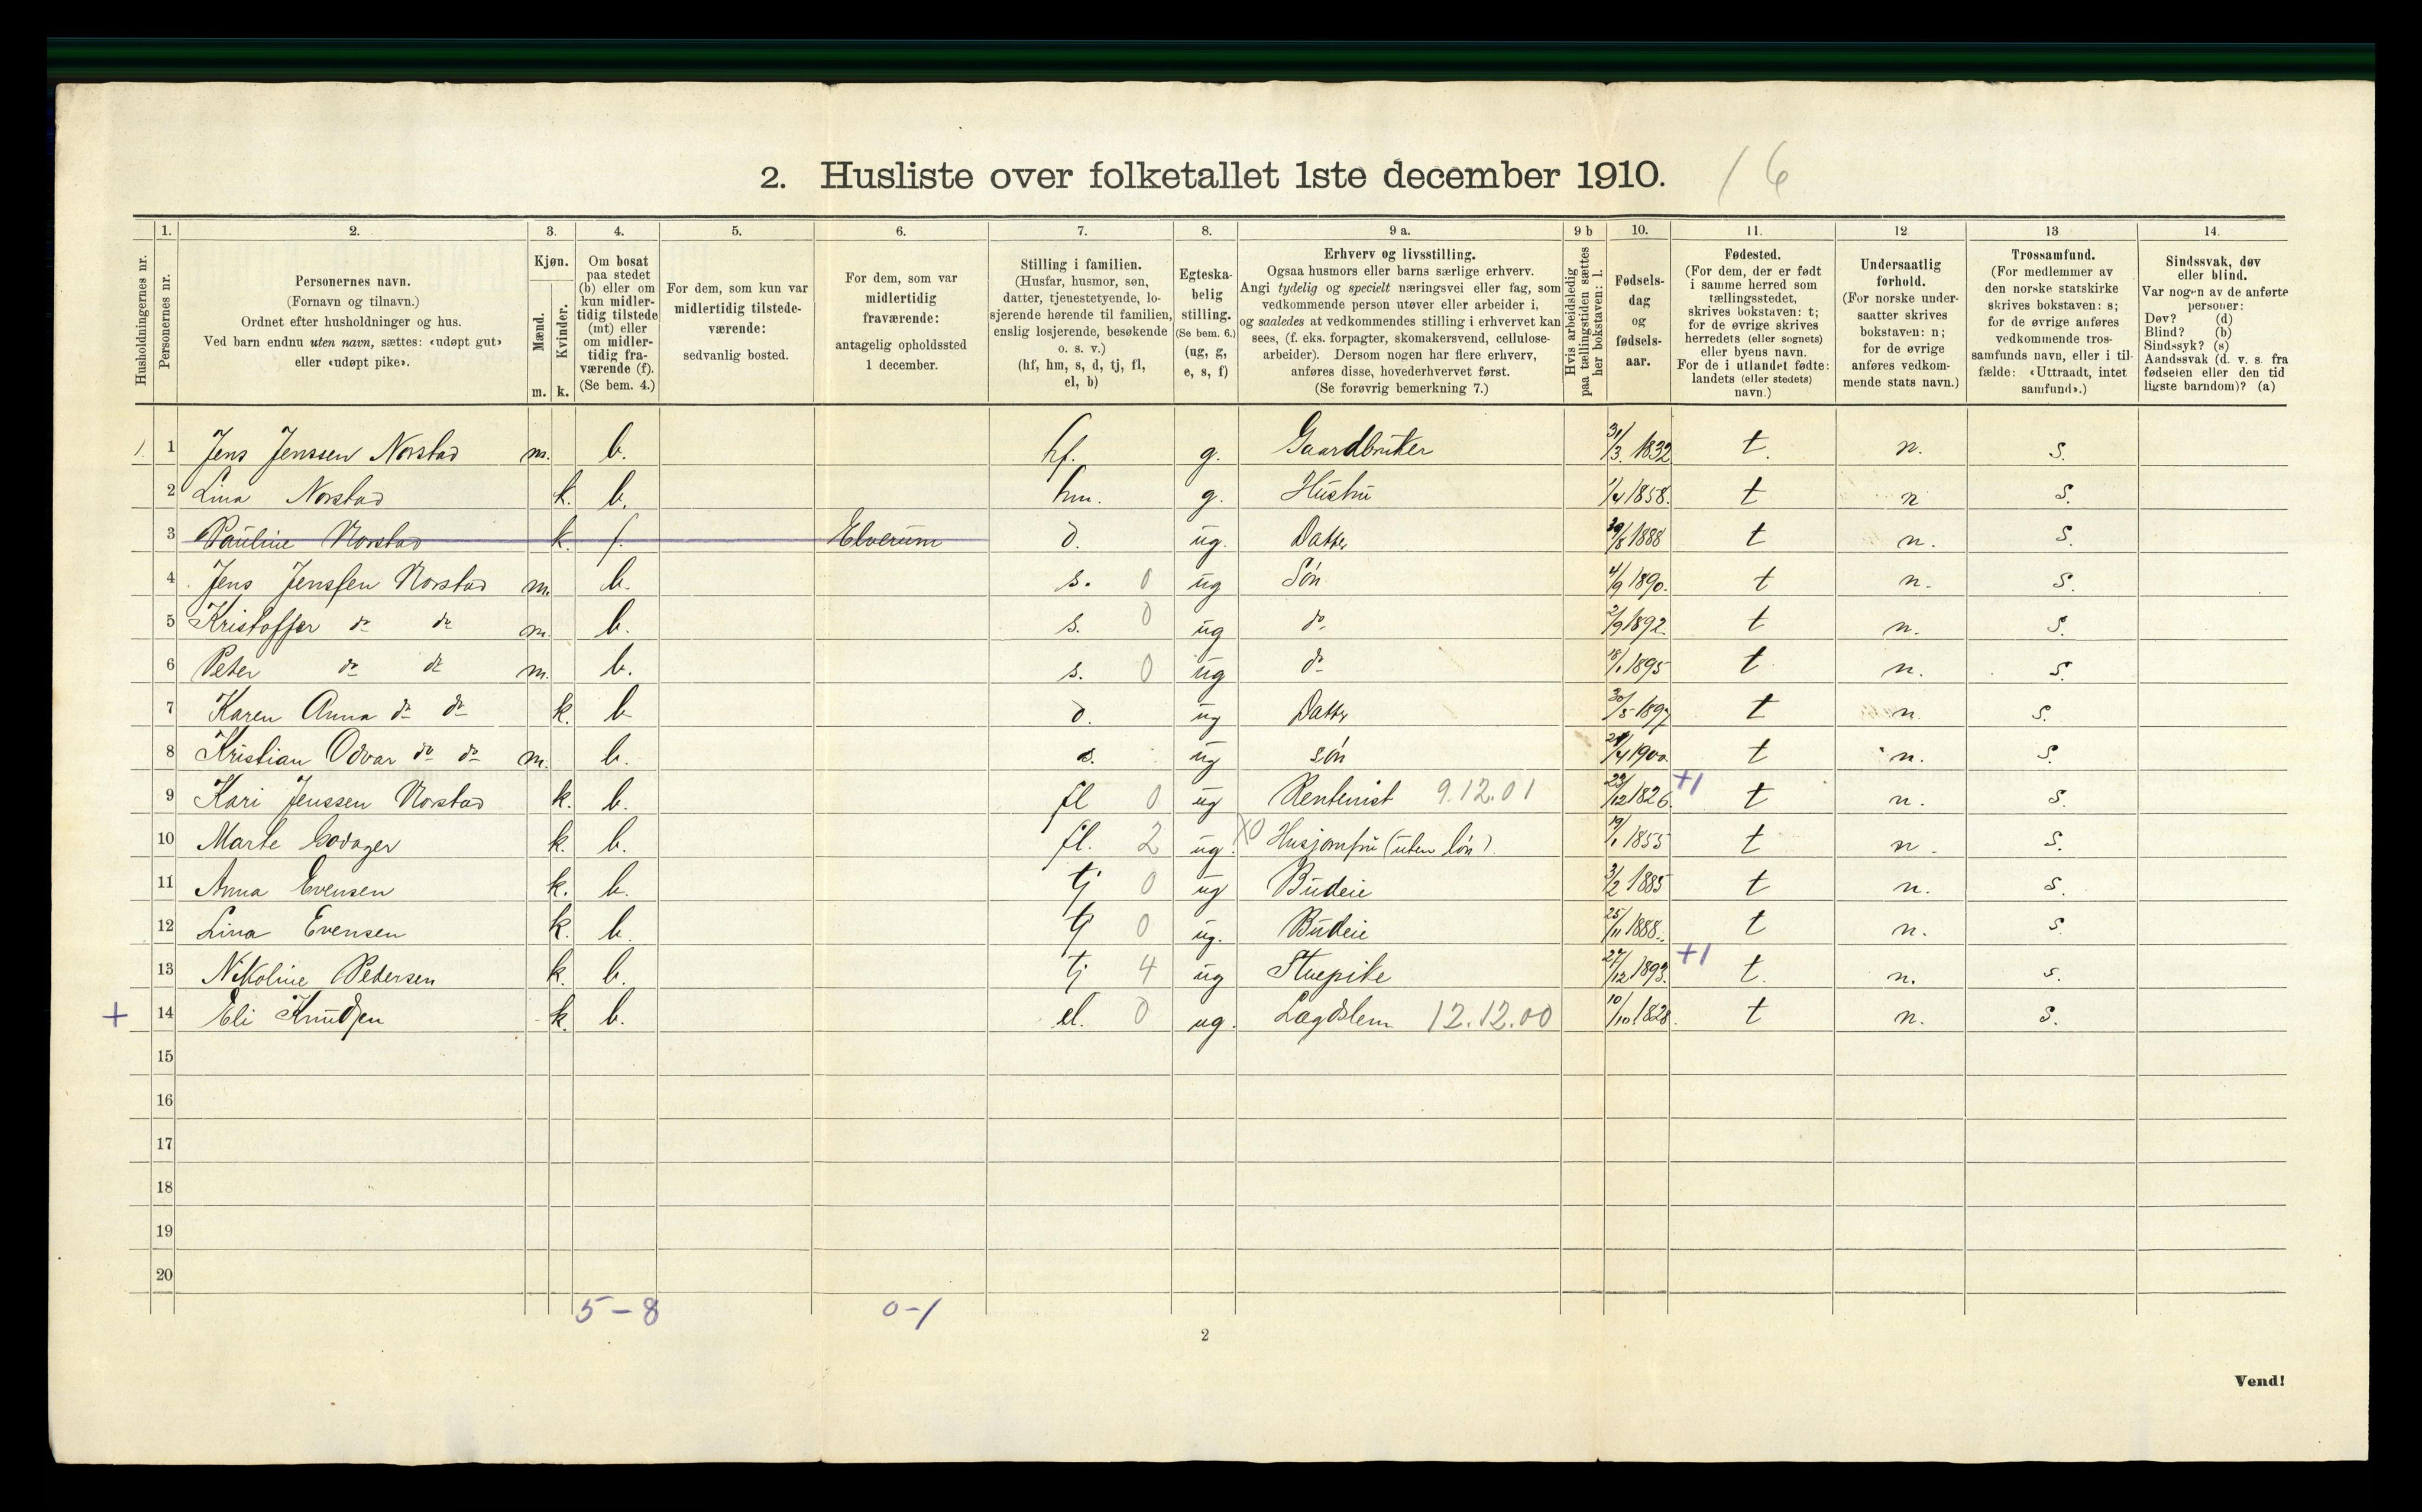 2. Husliste over folketallet 1ste december 1910. 16
1. 2. 3. 4. 5. 6. 7. 8. 9 a. 9 b 10. 11. 12 13 14.
Husholdningernes nr.
Personernes nr.
Personernes navn.
(Fornavn og tilnavn.)
Ordnet efter husholdninger og hus.
Ved barn endnu uten navn, sættes: «udøpt gut»
eller «udøpt pike».
Kjøn.
Mænd.
Kvinder.
m. k.
Om bosat
paa stedet
(b) eller om
kun midler-
tidig tilstede
(mt) eller
om midler-
tidig fra-
værende (f).
(Se bem. 4.)
For dem, som kun var
midlertidig tilstede-
værende:
sedvanlig bosted.
For dem, som var
midlertidig
fraværende:
antagelig opholdssted
1 december.
Stilling i familien.
(Husfar, husmor, søn,
datter, tjenestetyende, lo-
sjerende hørende til familien,
enslig losjerende, besøkende
o. s. v.)
(hf, hm, s, d, tj, fl,
el, b)
Egteska-
belig
stilling.
(Se bem. 6.)
(ug, g,
e, s, f)
Erhverv og livsstilling.
Ogsaa husmors eller barns særlige erhverv.
Angi tydelig og specielt næringsvei eller fag, som
vedkommende person utøver eller arbeider i,
og saaledes at vedkommendes stilling i erhvervet kan
sees, (f. eks. forpagter, skomakersvend, cellulose-
arbeider). Dersom nogen har flere erhverv,
anføres disse, hovederhvervet først.
(Se forøvrig bemerkning 7.)
Hvis arbeidsledig
paa tællingstiden sættes
her bokstaven: l.
Fødsels-
dag
og
fødsels-
aar.
Fødested.
(For dem, der er født
i samme herred som
tællingsstedet,
skrives bokstaven: t;
for de øvrige skrives
herredets (eller sognets)
eller byens navn.
For de i utlandet fødte:
landets (eller stedets)
navn.)
Undersaatlig
forhold.
(For norske under-
saatter skrives
bokstaven: n;
for de øvrige
anføres vedkom-
mende stats navn.)
Trossamfund.
(For medlemmer av
den norske statskirke
skrives bokstaven: s;
for de øvrige anføres
vedkommende tros-
samfunds navn, eller i til-
fælde: «Uttraadt, intet
samfund».)
Sindssvak, døv
eller blind.
Var nogen av de anførte
personer:
Døv? (d)
Blind? (b)
Sindssyk? (s)
Aandssvak (d. v. s. fra
fødselen eller den tid
ligste barndom)? (a)
1. 1 Jens Jenssen Norstad m. b. hf. g. Gaardbruker 31/3. 1832 t. n. s.
2 Lina Norstad k. b. hm. g. Hustru 1/4 1858. t n s.
3 Pauline Norstad k. f. Elverum d. ug. Datter /8 1888 t n. s.
4 Jens Jenssen Norstad m. b. s. 0 ug Søn 4/9 1890. t n. s.
5 Kristoffer do do m. b. s. 0 ug do 2/9 1892. t n. s.
6 Peter do do m. b. s. 0 ug do 18/1 1895 t n. s.
7 Karen Anna do do k. b d. ug Datter 30/5 1897 t n. s.
8 Kristian Odvar do do m. b. s. ug søn /4 1900. t n. s.
9 Kari Jenssen Norstad k. b. fl 0 ug Rentenist 9.12.01 23/12 1826. +1 t n. s.
10 Marte Godager k. b. fl. 2 ug. X0 Husjomfru (uten løn). 19/1 1855 t n. s.
11 Anna Evensen k. b. tj 0 ug Budeie 3/2 1885 t n. s.
12 Lina Evensen k. b. tj 0 ug. Budeie 25/11 1888. t n. s.
13 Nikoline Pedersen k. b. tj 4 ug Stuepike 27/12 1893. +1 t. n. s.
+ 14 Eli Knudsen k. b. el. 0 ug. Lægdslem 12.12.00 10/10 1828. t n. s.
15
16
17
18
19
20
5 - 8 0 - 1
2
Vend!